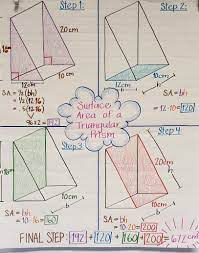 Step 1:
20cm
10cm
12cm
SA = ½ (bh)
= ½ (12·16)
= .5 (12·16)
96 x 2 = 192
Step 2:
10cm
12cm
b
SA = bh
= 12·10 = 120
Surface
Area of a
Triangular
Prism
Step 3
h
10cm
b
SA = bh
= 10·16 = 160
Step 4
20cm
h
10cm
b
SA = bh
= 10·20 = 200
FINAL STEP: 192 + 120 + 160 + 200 = 672 cm